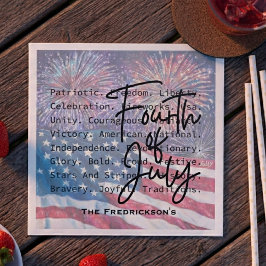 Patriotic. Freedom. Liberty.
Celebration. Fireworks. Usa.
Unity. Courageous.
Victory. American. National.
Independence. Revolutionary.
Glory. Bold. Proud. Festive.
Stars And Stripes.
Bravery. Joyful. Traditions.
Fourth
of
July
THE FREDRICKSON'S